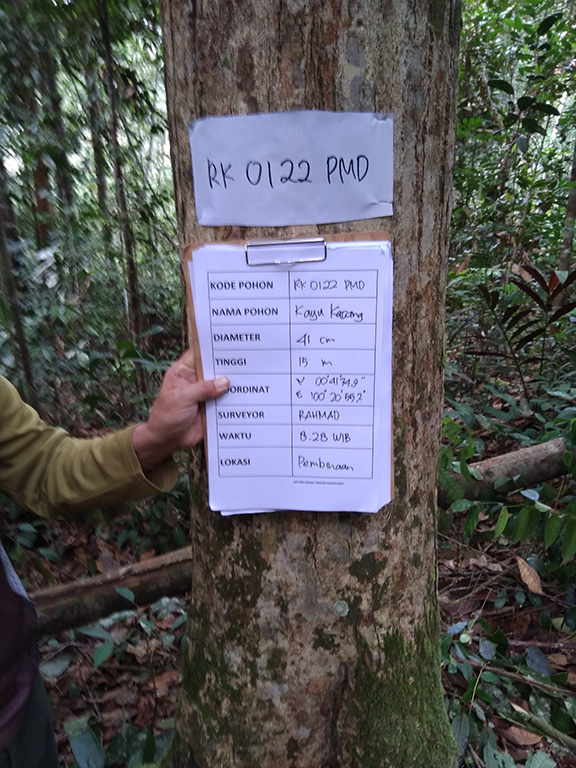 RK 0122 PMD
KODE POHON RK 0122 PMD
NAMA POHON Kayu Kacang
DIAMETER 41 cm
TINGGI 15 m
OORDINAT 00°41'34,9"
E 100°20'59,2"
SURVEYOR RAHMAD
WAKTU 8.28 WIB
LOKASI Pembinaan